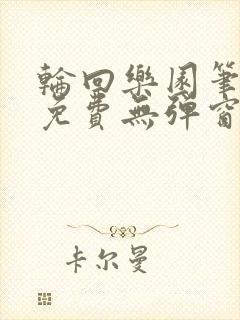 輪回樂園筆
免費無彈窗
卡尔曼